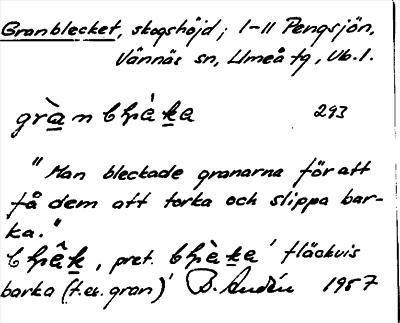 Granblecket, skogshöjd; 1-11 Pengsjön,
Vännäs sn, Umeå tg, Vb. l.
293
"Man bleckade granarna för att
få dem att torka och slippa bar-
ka."
, pret. ' fläckvis
barka (t.ex. gran)' 1957